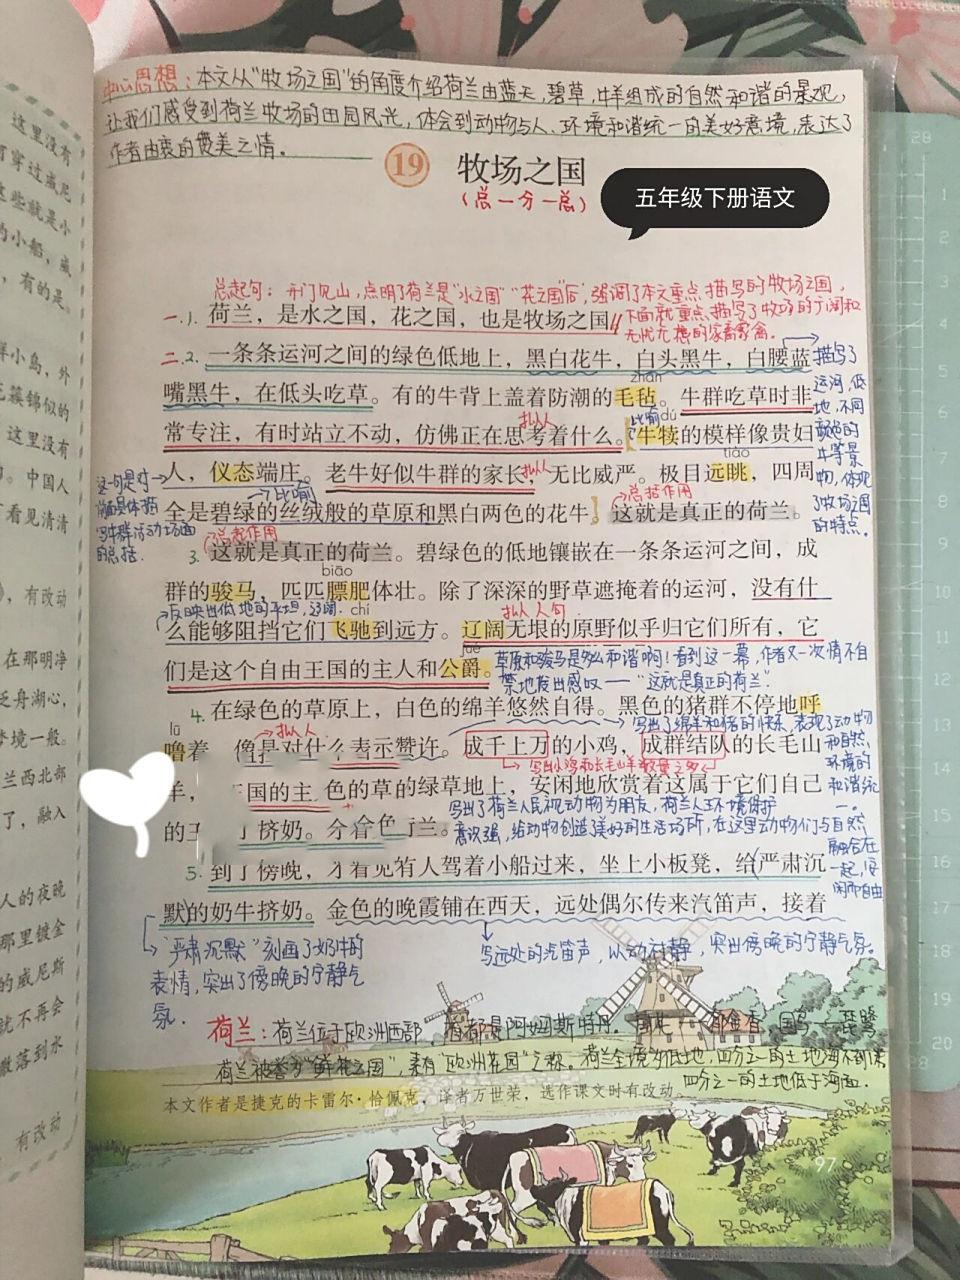 中心思想：本文从“牧场之国”的角度介绍荷兰由蓝天，碧草，牛羊组成的自然和谐的景观，
让我们感受到荷兰牧场的田园风光，体会到动物与人、环境和谐统一的美好意境，表达了
作者由衷的赞美之情。
19 牧场之国
（总一分一总）
五年级下册语文
总起句：开门见山，点明了荷兰是“水之国”“花之国”后，强调了本文重点描写的牧场之国，
下面就重点描写了牧场的广阔和
无忧无虑的家畜家禽。
一.1. 荷兰，是水之国，花之国，也是牧场之国
二.2. 一条条运河之间的绿色低地上，黑白花牛，白头黑牛，白腰蓝
嘴黑牛，在低头吃草。有的牛背上盖着防潮的毛毡。牛群吃草时非
zhān
常专注，有时站立不动，仿佛正在思考着什么。牛犊的模样像贵妇
拟人
比喻
dú
人，仪态端庄。老牛好似牛群的家长，无比威严。极目远眺，四周
拟人
tiào
全是碧绿的丝绒般的草原和黑白两色的花牛。这就是真正的荷兰。
比喻
总括作用
描写了
运河，低
地，不同
颜色的
牛等景
物，体现
了牧场之国
的特点。
这句是对
前面具体描
写牛群活动场面
的总括.
总起作用
3. 这就是真正的荷兰。碧绿色的低地镶嵌在一条条运河之间，成
群的骏马，匹匹膘肥体壮。除了深深的野草遮掩着的运河，没有什
biāo
反映出低地的平坦，辽阔.
chí
拟人句
么能够阻挡它们飞驰到远方。辽阔无垠的原野似乎归它们所有，它
们是这个自由王国的主人和公爵。
jué
草原和骏马是多么和谐啊！看到这一幕，作者又一次情不自
禁地发出感叹——“这就是真正的荷兰”
4. 在绿色的草原上，白色的绵羊悠然自得。黑色的猪群不停地呼
写出了绵羊和猪的快乐，表现了动物
和自然
环境的
和谐统
一。
lū
拟人
噜着 像是对什么表示赞许。成千上万的小鸡，成群结队的长毛山
写出小鸡和长毛山羊数量之多
羊， 国的主 色的草的绿草地上，安闲地欣赏着这属于它们自己
写出了荷兰人民视动物为朋友，荷兰人环境保护
意识强，给动物创造了美好的生活场所，在这里动物们与自然
融合在
一起，安
闲而自由
的 挤奶。 金色 兰。
5. 到了傍晚，才看见有人驾着小船过来，坐上小板凳，给严肃沉
默的奶牛挤奶。金色的晚霞铺在西天，远处偶尔传来汽笛声，接着
“严肃沉默”刻画了奶牛的
表情，突出了傍晚的宁静气
氛.
写远处的汽笛声，以动衬静，突出傍晚的宁静气氛。
荷兰：荷兰位于欧洲西部，首都是阿姆斯特丹。国花——郁金香，国鸟——琵鹭
荷兰被誉为“鲜花之国”，素有“欧洲花园”之称。荷兰全境为低地，四分之一的土地海拔不到1米
四分之一的土地低于海面.
本文作者是捷克的卡雷尔·恰佩克，译者万世荣，选作课文时有改动。
97